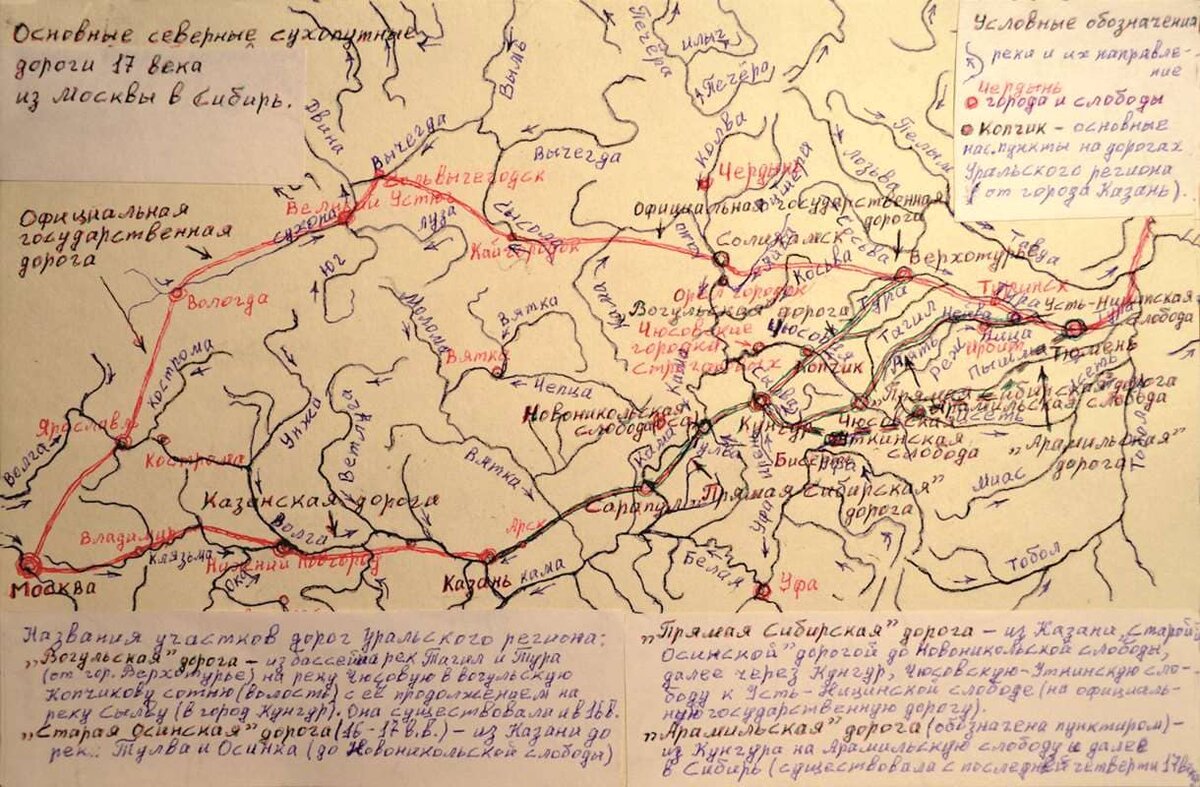 Основные северные сухопутные
дороги 17 века
из Москвы в Сибирь.
Условные обозначения
реки и их направле-
ние
Чердынь
города и слободы
Копчик - основные
нас.пункты на дорогах
Уральского региона
(от города Казань).
Печёра
илыч
Печёра
Вымь
Двина
Вычегда
Вычегда
Колва
Чердынь
Вишера
Лозьва
Пелым
Сольвычегодск
Великий Устюг
Официальная
государственная
дорога
Официальная государственная
дорога
сухона
Луза
Сысола
Кайгородок
Соликамск
Верхотурье
Тавда
Юг
Вологда
Орёл городок
Косьва
Туринск
Тура
Усть-Ницинская
слобода
Кама
Вогульская дорога
Тура
Тагил
Нейва
Ница
Тура
Молома
Вятка
Чюсовские
городки
Строгановых
Чюсовая
Реж
Ирбит
Пышма
Тюмень
Кострома
Вятка
Чепца
Кама
Копчик
"Прямая Сибирская" дорога
Исеть
Ярославль
Унжа
Ветлуга
Новоникольская
слобода
Оса
Кунгур
Чюсовская
Уткинская
слобода
Арамильская слобода
Исеть
Тобол
Волга
Кострома
Вятка
Кама
Тулва
Бисерть
Уфа
"Арамильская"
дорога
Казанская дорога
Сарапул
"Прямая Сибирская"
дорога
Миас
Владимир
Клязьма
Волга
Арск
Уфа
Москва
Нижний Новгород
Ока
Казань
кама
Белая
Уфа
Тобол
Названия участков дорог Уральского региона:
"Вогульская" дорога - из бассейна рек Тагил и Тура
(от гор. Верхотурье) на реку Чюсовую в вогульскую
Копчикову сотню (волость) с её продолжением на
реку Сылву (в город Кунгур). Она существовала и в 16 в.
"Старая Осинская" дорога (16-17 в.в.) - из Казани до
рек: Тулва и Осинка (до Новоникольской слобода)
"Прямая Сибирская" дорога - из Казани "старой
Осинской" дорогой до Новоникольской слободы,
далее через Кунгур, Чюсовскую-Уткинскую сло-
боду к Усть-Ницинской слободе (на официаль-
ную государственную дорогу).
"Арамильская" дорога (обозначена пунктиром) -
из Кунгура на Арамильскую слободу и далее
в Сибирь (существовала с последней четверти 17 века